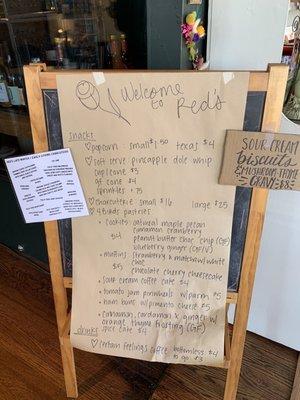 Welcome to Red's
snacks
♡ popcorn - small $1.50 texas $4
♡ soft serve pineapple dole whip
cup/cone $3
gf cone $4
sprinkles + .75
♡ charcuterie - small $16 large $25
♡ 4 Birds pastries
• cookies: oatmeal maple pecan
cinnamon cranberry
$4 peanut butter choc. chip (GF)
blueberry ginger (GF/V)
• muffins: strawberry & matcha w/ white
choc
$5 chocolate cherry cheesecake
• sour cream coffee cake $4
• tomato jam pinwheels w/ parm $5
• ham buns w/ pimento cheese $5
• cinnamon, cardamom & ginger w/
orange thyme frosting (GF)
spice cake $4
drinks
♡ certain feelings coffee bottomless $4
to go $3
SOUR CREAM
biscuits
& MUSHROOM-THYME
GRAVY $8